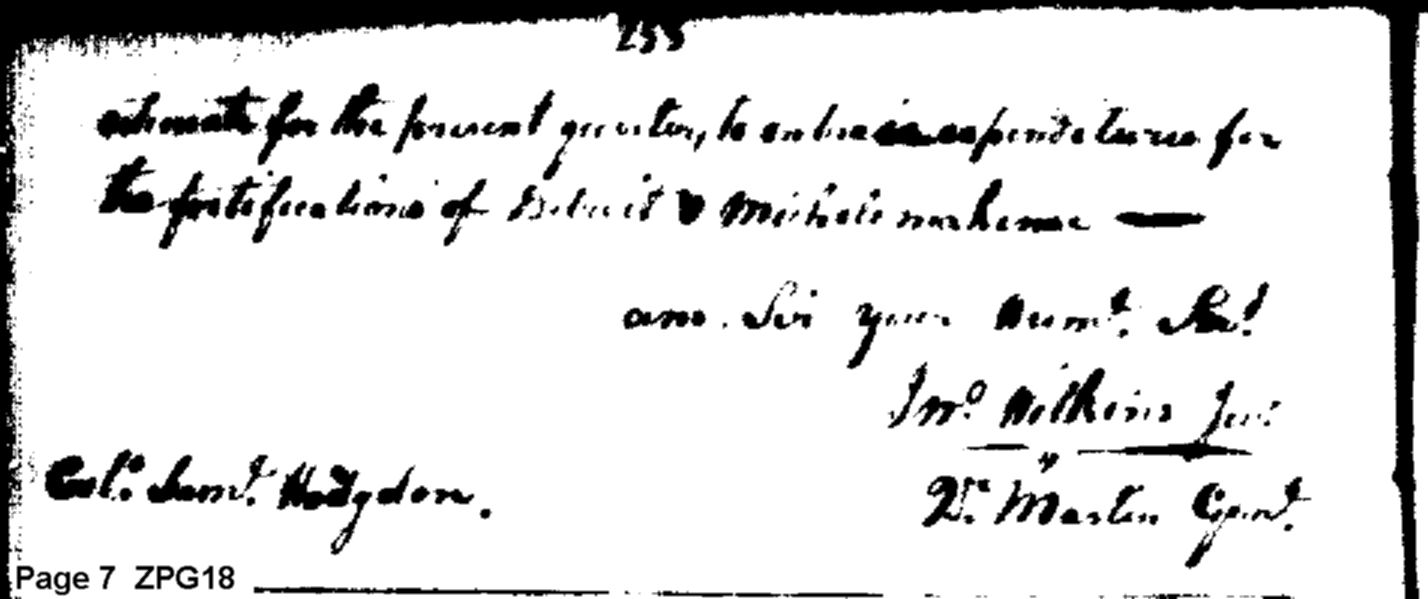 255
estimate for the present quarter, to embrace expenditures for
the fortifications of Detroit & Michilimackenac —
am. Sir your Humt. Sert
Jno Wilkins Junr
Colo. Saml. Hodgdon.
Qr. Master Genl.
Page 7 ZPG18